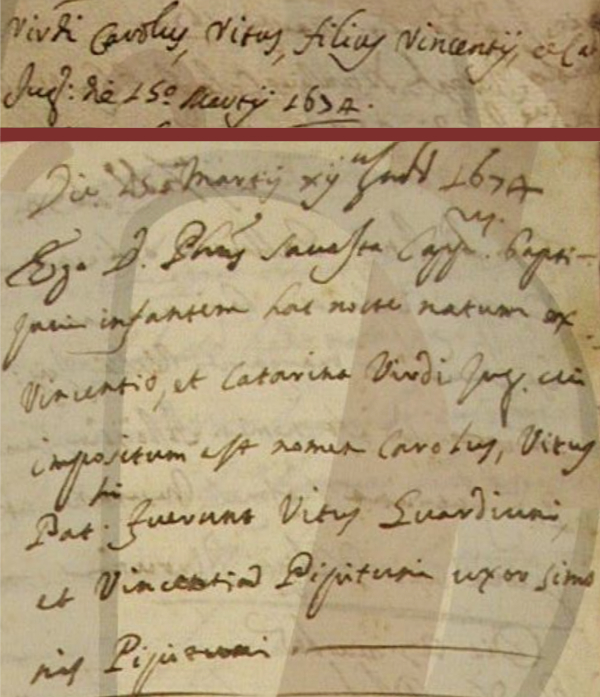 Virdi Carolus, Vitus, filius Vincentij, et Ca
Jug: die 15º Martij 1674.
Die 15º Martij xij Ind 1674
Ego D. Phus Cappn. bapti-
zavi infantem hac nocte natum ex
Vincentio, et Catarina Virdi Jug. cui
impositum est nomen Carolus, Vitus
Pat: fuerunt Vitus Guardiuni
et Vincentia Pipituni uxor Simo
nis Pipituni